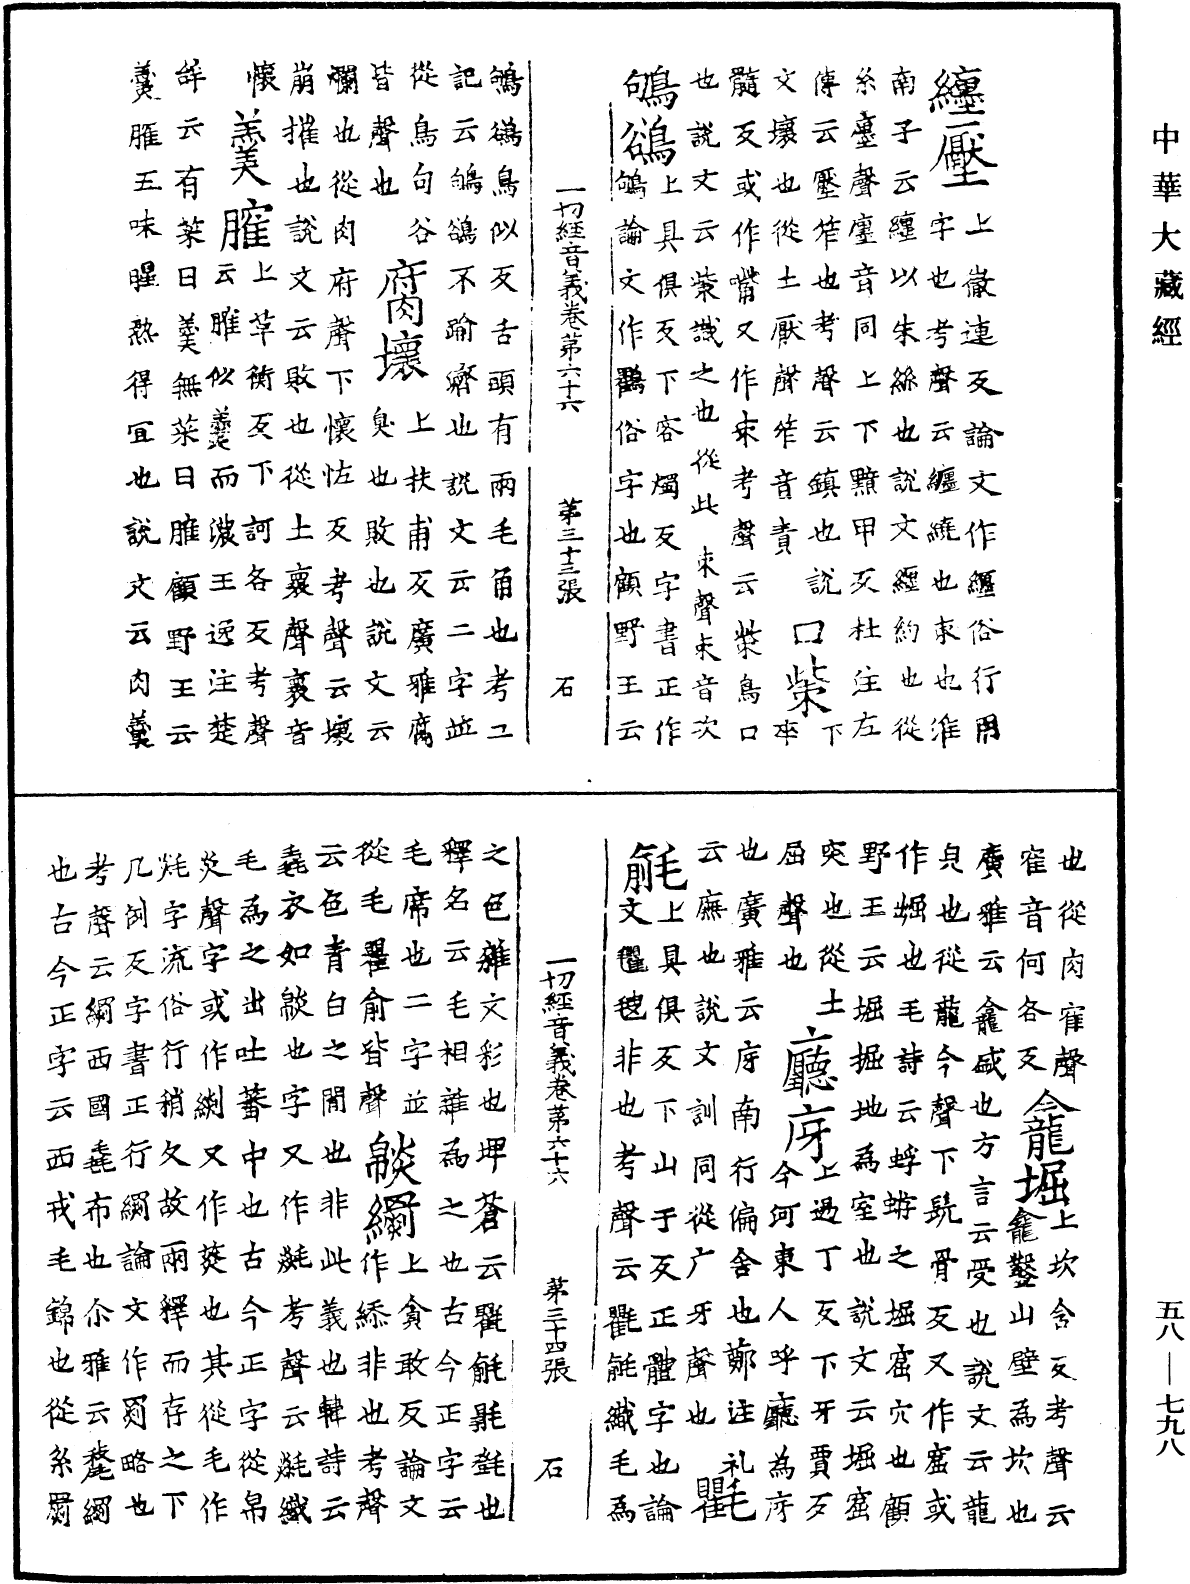 中華大藏經
纏壓上徹連反論文作纒俗行用
字也考聲云纏繞也束也淮
南子云纏以朱絲也說文經約也從
糸廛聲廛音同上下黶甲反杜注左
傳云壓笮也考聲云鎮也說
文壞也從土厭聲笮音責 口㭰下卒
髓反或作觜又作束考聲云㭰鳥口
也說文云㭰識之也從此束聲束音次
鴝鵒上具俱反下容燭反字書正作
鴝論文作鸜俗字也顧野王云
一切經音義卷第六十六 第三十三張 石
鴝鵒鳥似反舌頭有兩毛角也考工
記云鴝鵒不踰濟也說文云二字並
從鳥句谷皆聲也 腐壞上扶甫反廣雅腐
臭也敗也說文云
爛也從肉府聲下懷恠反考聲云壞
崩摧也說文云敗也從土褱聲褱音
懷 羹臛上革衡反下訶各反考聲
云臛似羹而濃王逸注楚
辞云有菜曰羹無菜曰臛顧野王云
羹臛五味腥熟得宜也說文云肉羹
也從肉隺聲
隺音何各反 龕堀上坎含反考聲云
龕鑿山壁為坎也
廣雅云龕盛也方言云受也說文云龍
皃也從龍今聲下髡骨反又作窟或
作堀也毛詩云蜉蝣之堀窟穴也顧
野王云堀掘地為室也說文云堀窟
突也從土屈聲也 廳庌上逷丁反下牙賈反
今河東人呼廳為庌
也廣雅云庌南行偏舍也鄭注礼
云廡也說文訓同從广牙聲也 氍
毹上具俱反下山于反正體字也論
文氍毹非也考聲云氍毹織毛為
一切經音義卷第六十六 第三十四張 石
之色雜文彩也埤蒼云氍毹毾㲪也
釋名云毛相雜為之也古今正字云
毛席也二字並
從毛瞿俞皆聲 㲜罽上貪敢反論文
作緂非也考聲
云色青白之間也非此義也韓詩云
毳衣如㲜也字又作毯考聲云毯織
毛為之出吐蕃中也古今正字從帛
炎聲字或作緂又作菼也其從毛作
毯字流俗行稍久故兩釋而存之下
几例反字書正行罽論文作罽略也
考聲云罽西國毳布也尒雅云氂罽
也古今正字云西戎毛錦也從糸罽
五八—七九八